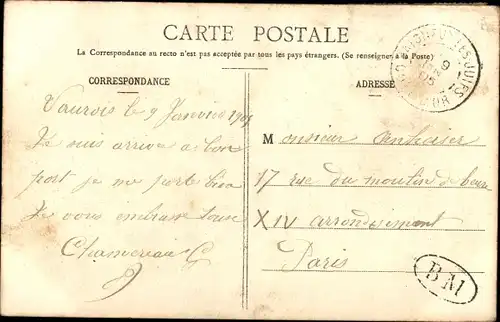 CARTE POSTALE
La Correspondance au recto n'est pas acceptée par tous les pays étrangers. (Se renseigner à la Poste)
CORRESPONDANCE
ADRESSE
le 9 Janvier 1905
Je suis arrivé a bon
port je me porte bien
Je vous embrasse tous
Chamereau G
Monsieur
17 rue du moulin de beurre
XIV arrondissement
Paris
BM